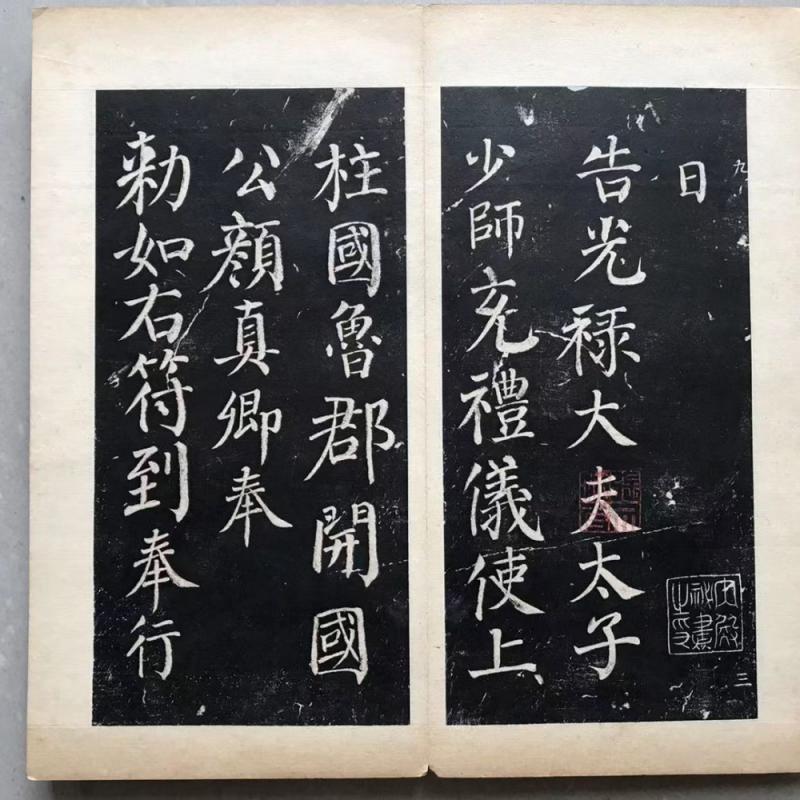 九
日
告光禄大夫太子
少師充禮儀使上
柱國魯郡開國
公顏真卿奉
勅如右符到奉行
三